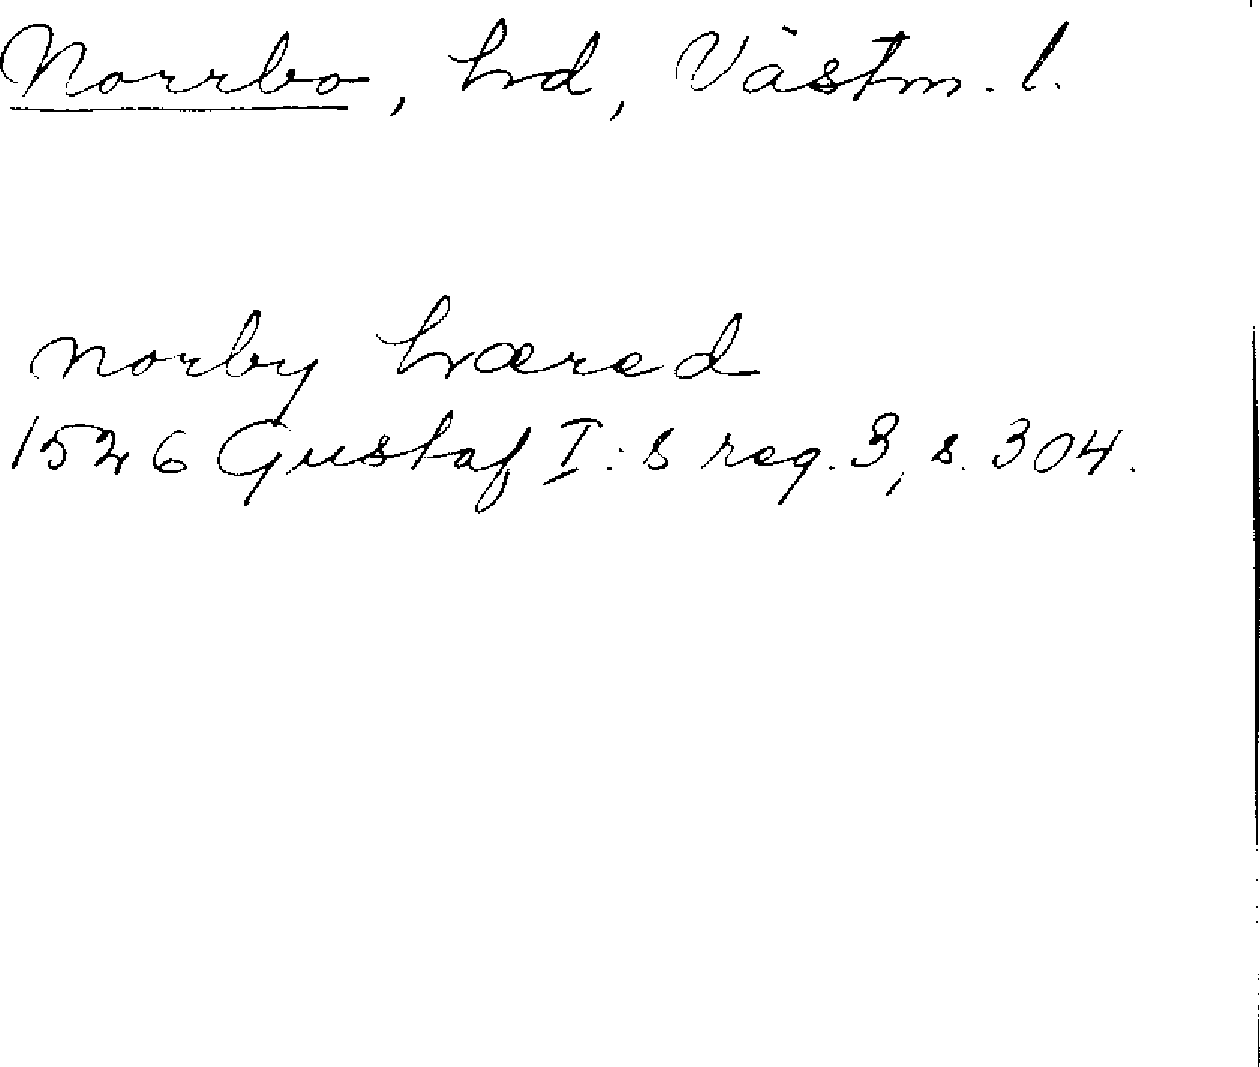 Norrbo, hd, Västm. l.
norby hæred
1526 Gustaf I:s reg. 3, s. 304.